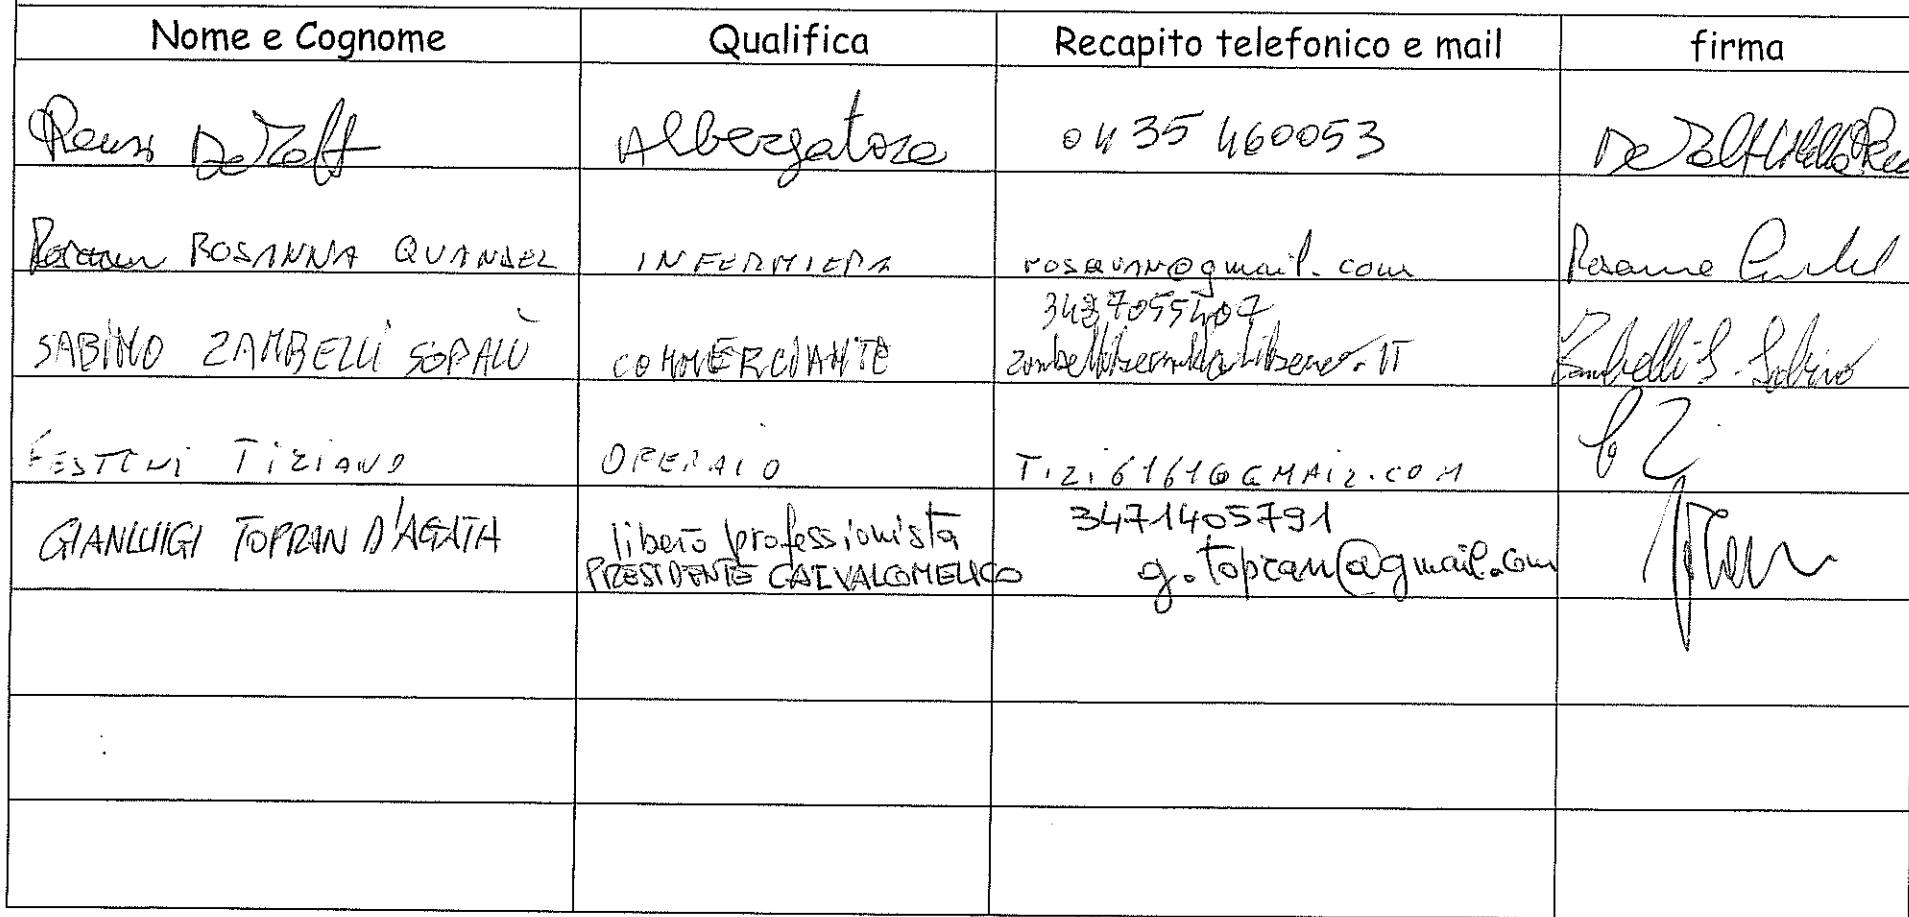 Nome e Cognome Qualifica Recapito telefonico e mail firma
De Zolt Albergatore 0435 460053 De Zolt
ROSANNA QUANDEL INFERMIERA rosquan@gmail.com Rosanna
3487055407
SABINO ZAMBELLI SOPALÙ COMMERCIANTE Zambelli S. Sabino
FESTINI TIZIANO OPERAIO TIZI61616@GMAIL.COM
GIANLUIGI TOPRAN D'AGATA libero professionista 3471405791
PRESIDENTE CAI VALCOMELICO g.topran@gmail.com